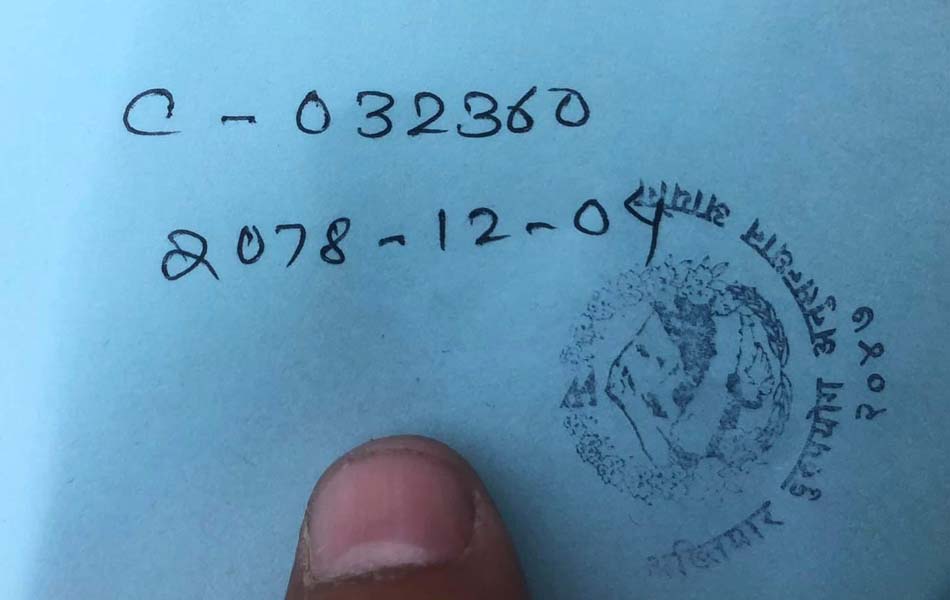 C - 032360
2078-12-04
अख्तियार दुरुपयोग अनुसन्धान आयोग